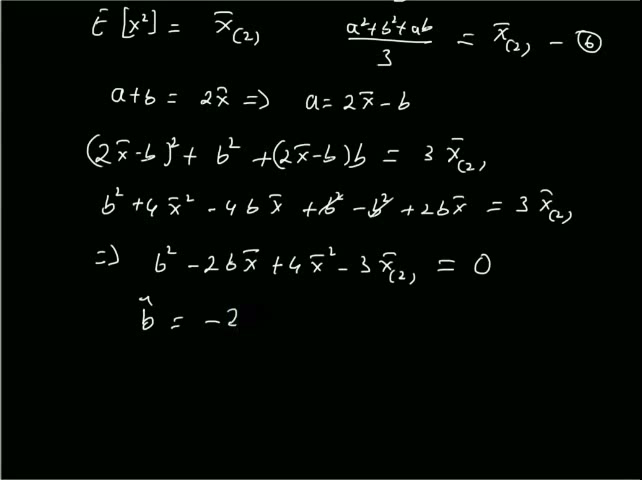 E[x²] = x̄₍₂₎    (a²+b²+ab)/3 = x̄₍₂₎ — ⑥
a+b = 2x̄ => a = 2x̄ - b
(2x̄-b)² + b² + (2x̄-b)b = 3 x̄₍₂₎
b² + 4x̄² - 4bx̄ + b² - b² + 2bx̄ = 3 x̄₍₂₎
=> b² - 2bx̄ + 4x̄² - 3x̄₍₂₎ = 0
b̂ = -2